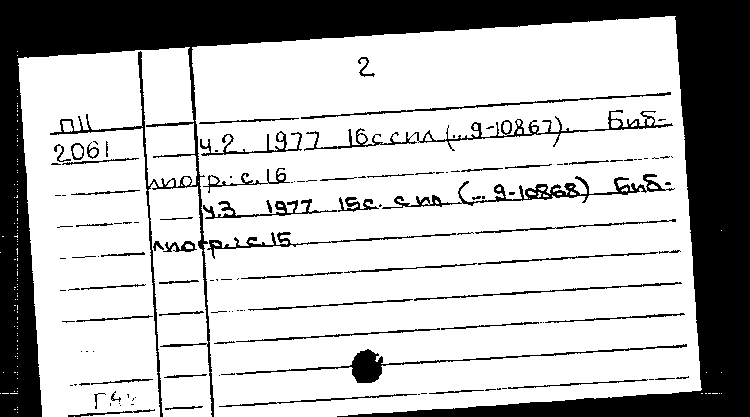 2
П11
2061
ч.2. 1977 16с с ил (...9-10867). Биб-
лиогр.: с.16
ч.3 1977. 15с. с ил (...9-10868) Биб-
лиогр.: с.15